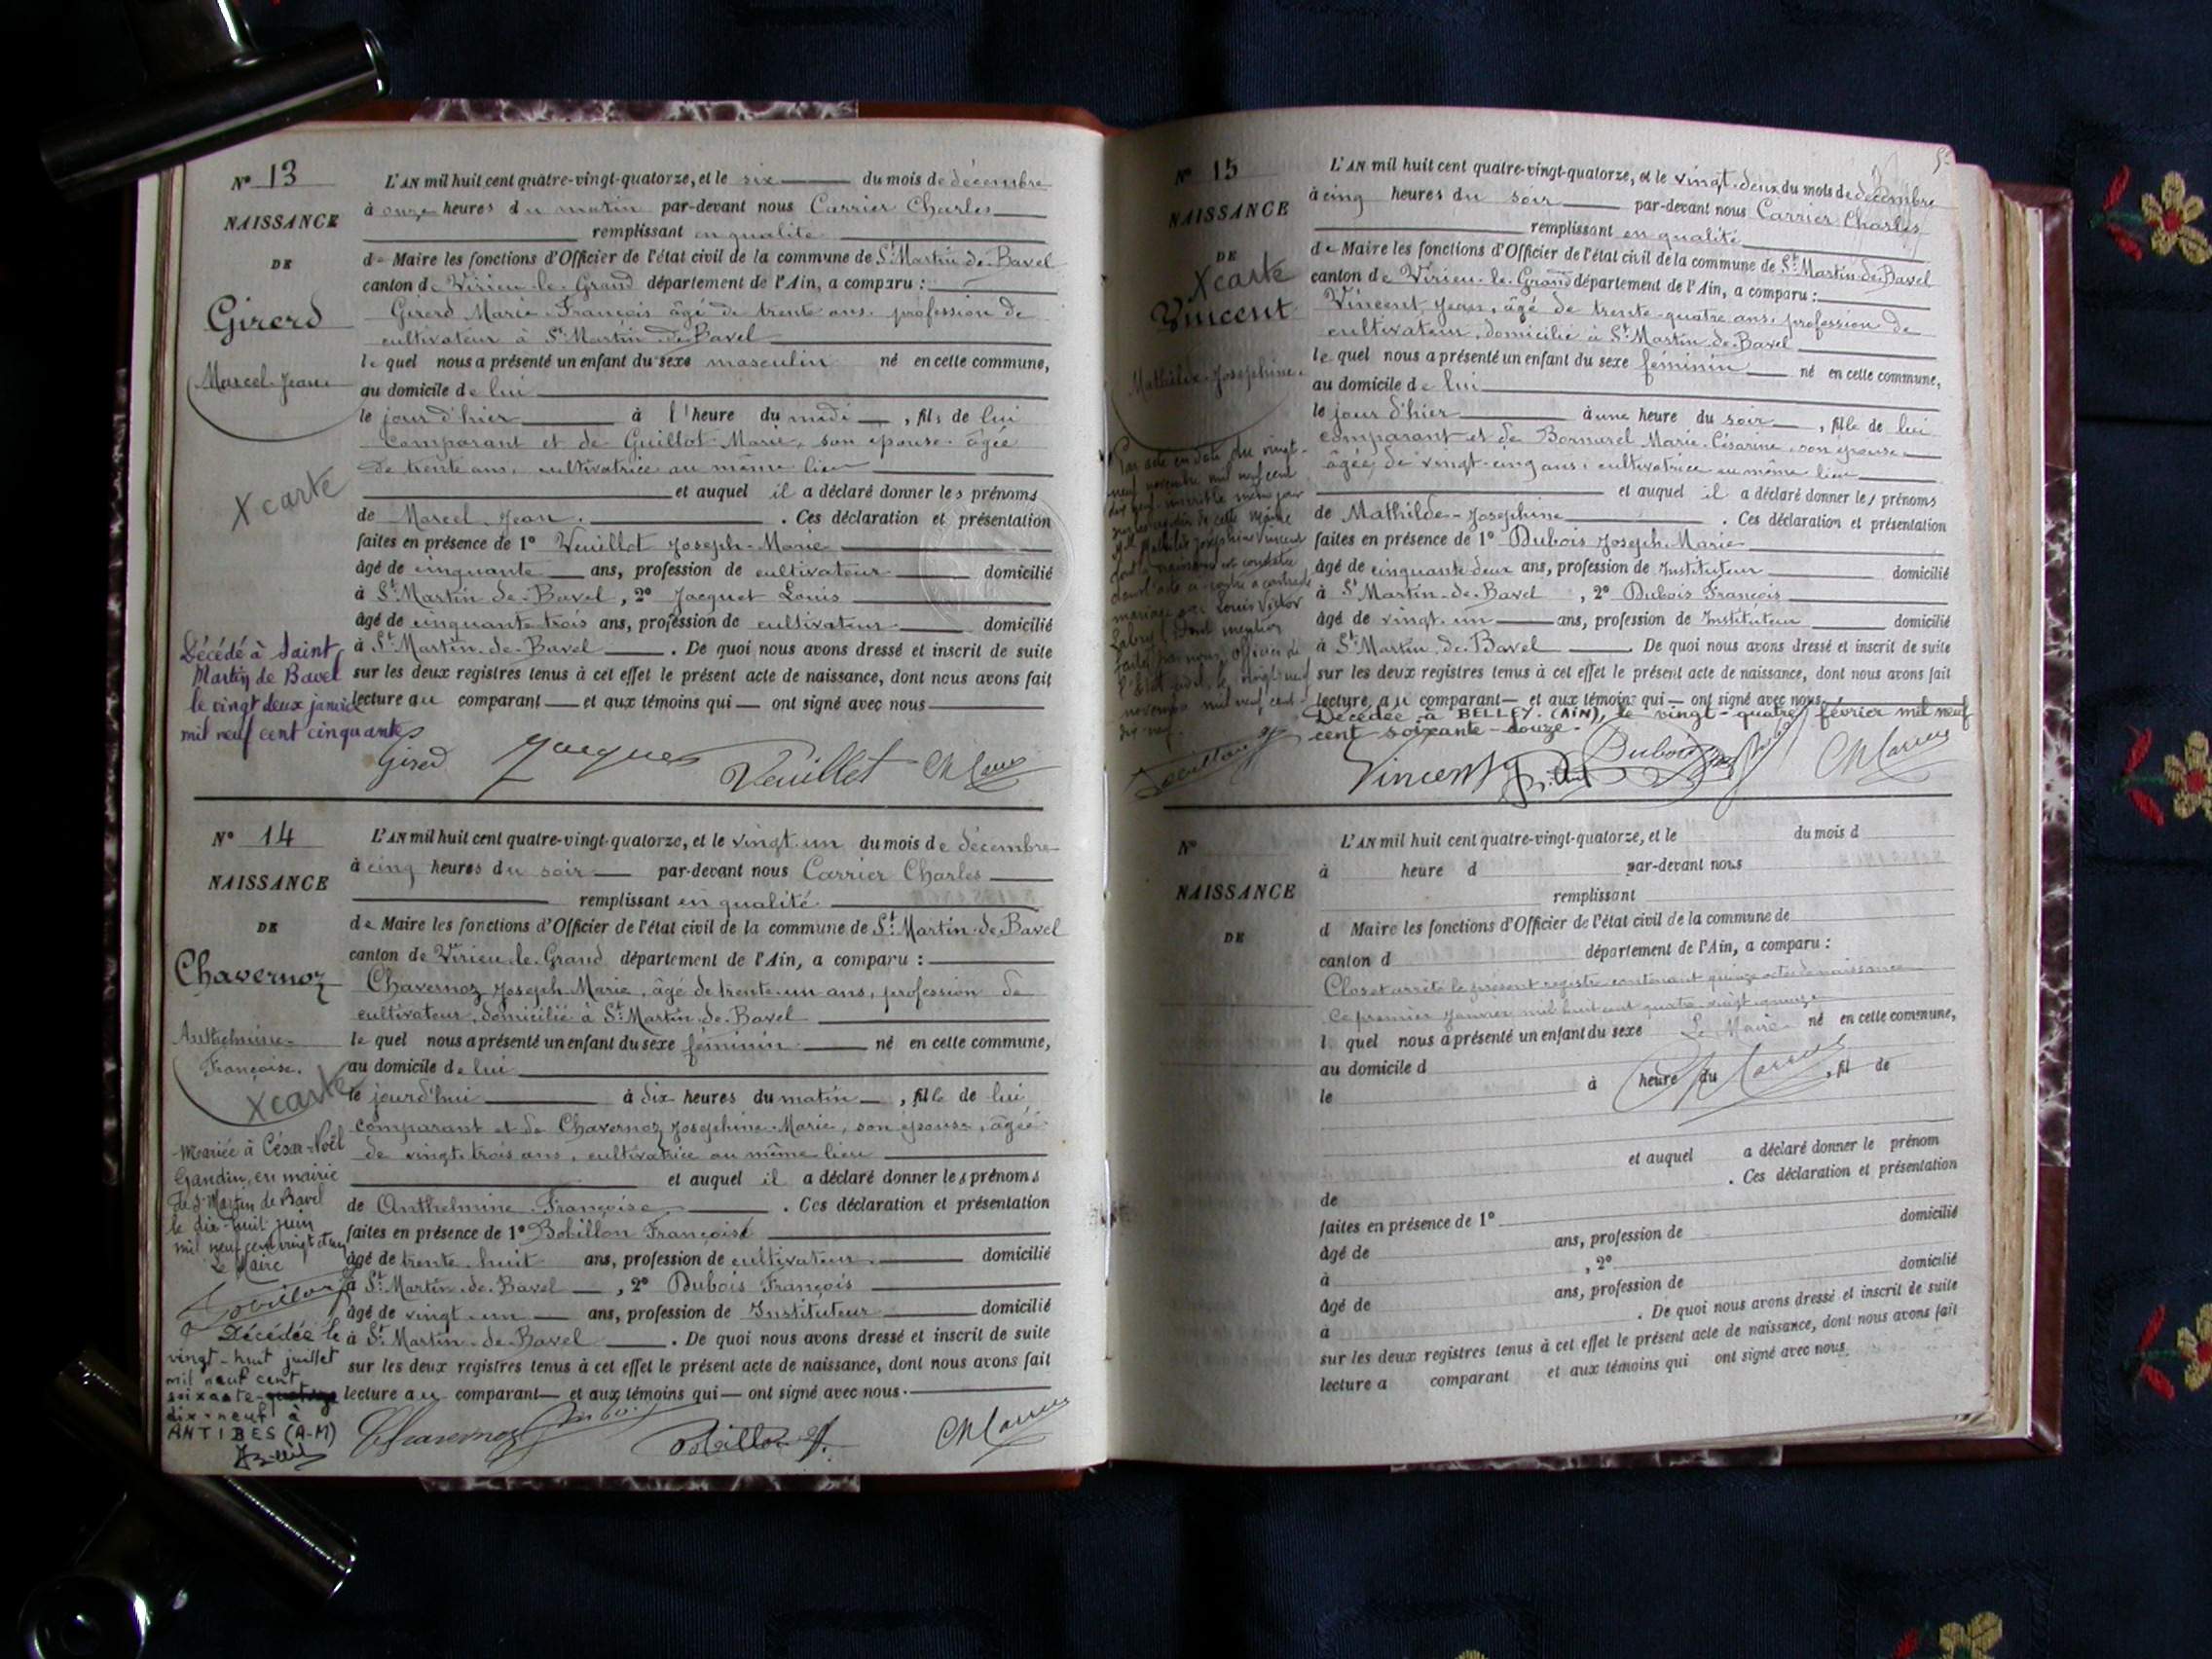 N° 13
NAISSANCE
DE
Girerd
Marcel-Jean
X carte
Décédé à Saint
Martin de Bavel
le vingt deux janvier
mil neuf cent cinquante
L'AN mil huit cent quatre-vingt-quatorze, et le six du mois de décembre
à onze heures du matin par-devant nous Carrier Charles
remplissant en qualité
de Maire les fonctions d'Officier de l'état civil de la commune de St Martin-de-Bavel
canton de Virieu-le-Grand département de l'Ain, a comparu :
Girerd Marie-François âgé de trente ans, profession de
cultivateur à St Martin-de-Bavel
lequel nous a présenté un enfant du sexe masculin né en cette commune,
au domicile de lui
le jour d'hier à l'heure du midi, fils de lui
comparant et de Guillot Marie, son épouse âgée
de trente ans, cultivatrice au même lieu
et auquel il a déclaré donner les prénoms
de Marcel Jean. Ces déclaration et présentation
faites en présence de 1° Veuillet Joseph-Marie
âgé de cinquante ans, profession de cultivateur domicilié
à St Martin-de-Bavel, 2° Jacquet Louis
âgé de cinquante-trois ans, profession de cultivateur domicilié
à St Martin-de-Bavel. De quoi nous avons dressé et inscrit de suite
sur les deux registres tenus à cet effet le présent acte de naissance, dont nous avons fait
lecture au comparant et aux témoins qui ont signé avec nous
Girerd Jacquet Veuillet Ch Carrier
N° 14
NAISSANCE
DE
Chavernoz
Anthelmine-
Françoise.
X carte
Mariée à César-Noël
Gandin, en mairie
de St Martin de Bavel
le dix-huit juin
mil neuf cent vingt et un
Le Maire
Décédée le
vingt-huit juillet
mil neuf cent
soixante-
dix-neuf à
ANTIBES (A-M)
L'AN mil huit cent quatre-vingt-quatorze, et le vingt-un du mois de décembre
à cinq heures du soir par-devant nous Carrier Charles
remplissant en qualité
de Maire les fonctions d'Officier de l'état civil de la commune de St Martin-de-Bavel
canton de Virieu-le-Grand département de l'Ain, a comparu :
Chavernoz Joseph Marie, âgé de trente-un ans, profession de
cultivateur, domicilié à St Martin-de-Bavel
lequel nous a présenté un enfant du sexe féminin né en cette commune,
au domicile de lui
le jourd'hui à dix heures du matin, fille de lui
comparant et de Chavernoz Joséphine-Marie, son épouse, âgée
de vingt-trois ans, cultivatrice au même lieu
et auquel il a déclaré donner les prénoms
de Anthelmine Françoise. Ces déclaration et présentation
faites en présence de 1° Bobillon François
âgé de trente-huit ans, profession de cultivateur domicilié
à St Martin-de-Bavel, 2° Dubois François
âgé de vingt-un ans, profession de Instituteur domicilié
à St Martin-de-Bavel. De quoi nous avons dressé et inscrit de suite
sur les deux registres tenus à cet effet le présent acte de naissance, dont nous avons fait
lecture au comparant et aux témoins qui ont signé avec nous.
Chavernoz Dubois Bobillon Ch Carrier
N° 15
NAISSANCE
DE
X carte
Vincent
Mathilde-Joséphine
Par acte en date du vingt-
neuf novembre mil neuf cent
dix neuf
Mathilde Joséphine Vincent
dont la naissance est constatée
dans l'acte ci-contre a contracté
mariage avec Louis Victor
novembre mil neuf cent
dix-neuf.
L'AN mil huit cent quatre-vingt-quatorze, et le vingt-deux du mois de décembre
à cinq heures du soir par-devant nous Carrier Charles
remplissant en qualité
de Maire les fonctions d'Officier de l'état civil de la commune de St Martin-de-Bavel
canton de Virieu-le-Grand département de l'Ain, a comparu :
Vincent Jean, âgé de trente-quatre ans, profession de
cultivateur, domicilié à St Martin-de-Bavel
lequel nous a présenté un enfant du sexe féminin né en cette commune,
au domicile de lui
le jour d'hier à une heure du soir, fille de lui
comparant et de Marie-Césarine, son épouse
âgée de vingt-cinq ans, cultivatrice au même lieu
et auquel il a déclaré donner les prénoms
de Mathilde-Joséphine. Ces déclaration et présentation
faites en présence de 1° Dubois Joseph-Marie
âgé de cinquante deux ans, profession de Instituteur domicilié
à St Martin-de-Bavel, 2° Dubois François
âgé de vingt-un ans, profession de Instituteur domicilié
à St Martin-de-Bavel. De quoi nous avons dressé et inscrit de suite
sur les deux registres tenus à cet effet le présent acte de naissance, dont nous avons fait
lecture, au comparant et aux témoins qui ont signé avec nous
Décédée à BELLEY (AIN), le vingt-quatre février mil neuf
cent soixante-douze.
Vincent Dubois Ch Carrier
N°
NAISSANCE
DE
L'AN mil huit cent quatre-vingt-quatorze, et le du mois d
à heure d par-devant nous
remplissant
d Maire les fonctions d'Officier de l'état civil de la commune de
canton d département de l'Ain, a comparu :
Clos et arrêté le présent registre contenant quinze actes de naissance
ce premier janvier mil huit cent quatre-vingt-quinze
l quel nous a présenté un enfant du sexe Le Maire né en cette commune,
au domicile d
le à heure du , fil de
Ch Carrier
et auquel a déclaré donner le prénom
de . Ces déclaration et présentation
faites en présence de 1°
âgé de ans, profession de domicilié
à , 2°
âgé de ans, profession de domicilié
à . De quoi nous avons dressé et inscrit de suite
sur les deux registres tenus à cet effet le présent acte de naissance, dont nous avons fait
lecture a comparant et aux témoins qui ont signé avec nous